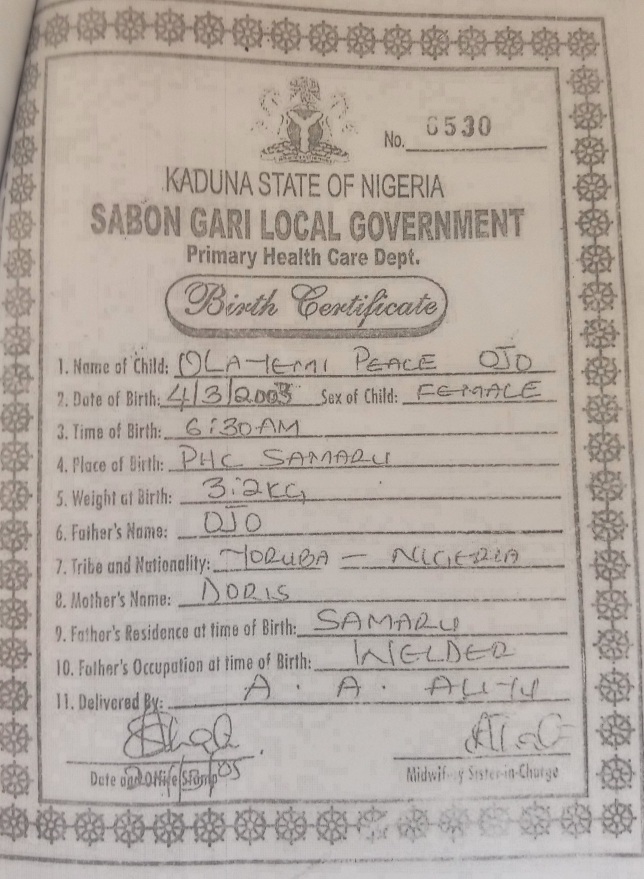 No. 6530
KADUNA STATE OF NIGERIA
SABON GARI LOCAL GOVERNMENT
Primary Health Care Dept.
Birth Certificate
1. Name of Child: OLAYEMI PEACE OJO
2. Date of Birth: 4/3/2003 Sex of Child: FEMALE
3. Time of Birth: 6:30AM
4. Place of Birth: PHC SAMARU
5. Weight at Birth: 3.2KG
6. Father's Name: OJO
7. Tribe and Nationality: YORUBA — NIGERIA
8. Mother's Name: DORIS
9. Father's Residence at time of Birth: SAMARU
10. Father's Occupation at time of Birth: WELDER
11. Delivered By: A. A. ALIYU
Date and Office Stamp
Midwifery Sister-in-Charge